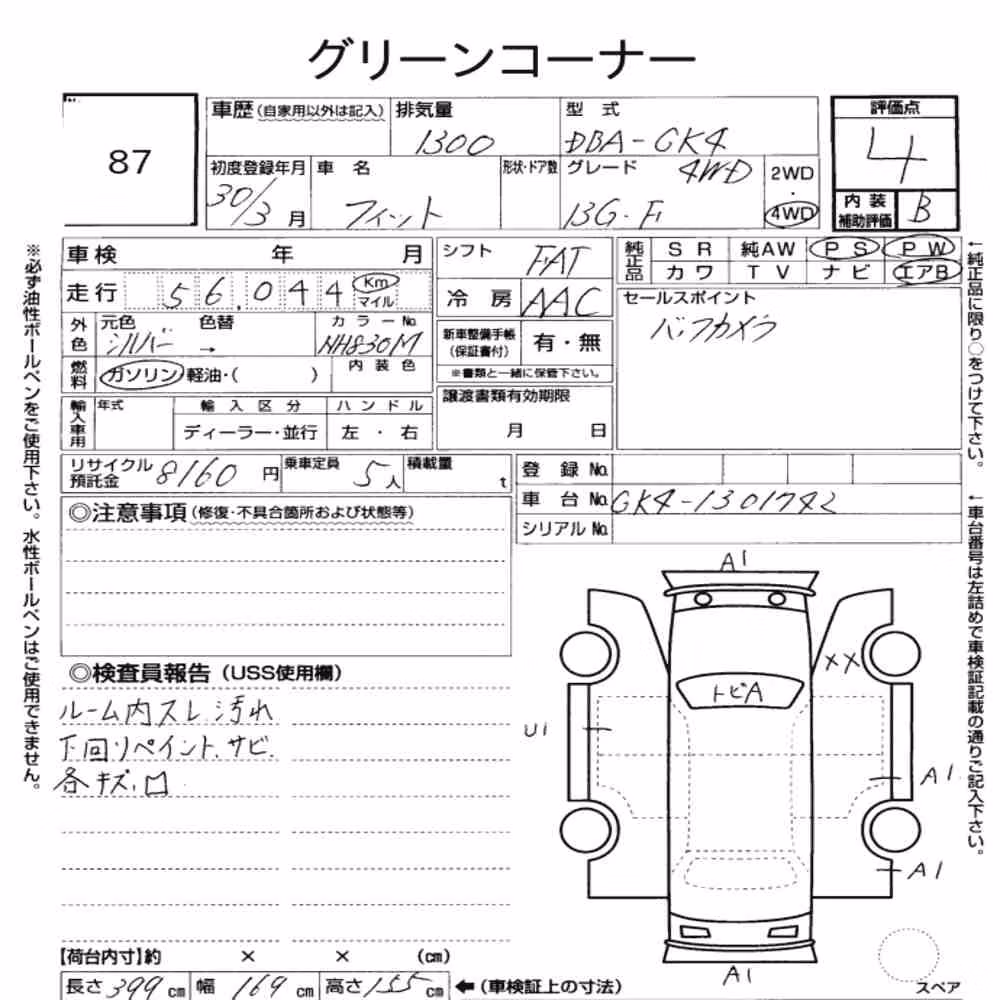 グリーンコーナー
87
車歴 (自家用以外は記入)
排気量
1300
型式
DBA-GK4
評価点
4
初度登録年月
30/3 月
車名
フィット
形状・ドア数
グレード
4WD
13G・F
2WD
・
4WD
内装
補助評価
B
車検 年 月
シフト
FAT
純正品
SR 純AW PS PW
カワ TV ナビ エアB
走行 56,044 Km
マイル
冷房 AAC
セールスポイント
バックカメラ
外色
元色 色替
シルバー →
カラーNo.
NH830M
新車整備手帳
(保証書付)
有・無
※書類と一緒に保管下さい。
燃料
ガソリン 軽油・( )
内装色
輸入車用
年式
輸入区分
ハンドル
ディーラー・並行
左・右
譲渡書類有効期限
月 日
リサイクル
預託金
8160 円
乗車定員
5人
積載量
t
登録No.
車台No. GK4-1301742
シリアルNo.
◎注意事項 (修復・不具合箇所および状態等)
◎検査員報告 (USS使用欄)
ルーム内スレ、汚れ
下回リペイント、サビ、
各キズ、凹
A1
XX
トビA
U1
A1
A1
A1
スペア
【荷台内寸】約 × × (cm)
長さ 399 cm 幅 169 cm 高さ 155 cm ←(車検証上の寸法)
※必ず油性ボールペンをご使用下さい。水性ボールペンはご使用できません。
←純正品に限り○をつけて下さい。
←車台番号は左詰めで車検証記載の通りご記入下さい。